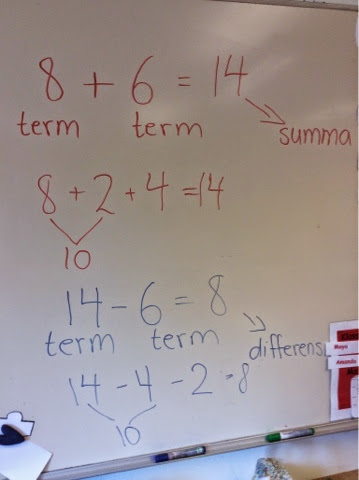 8 + 6 = 14
term term summa
8 + 2 + 4 = 14
10
14 - 6 = 8
term term differens
14 - 4 - 2 = 8
10
Maya
Amanda